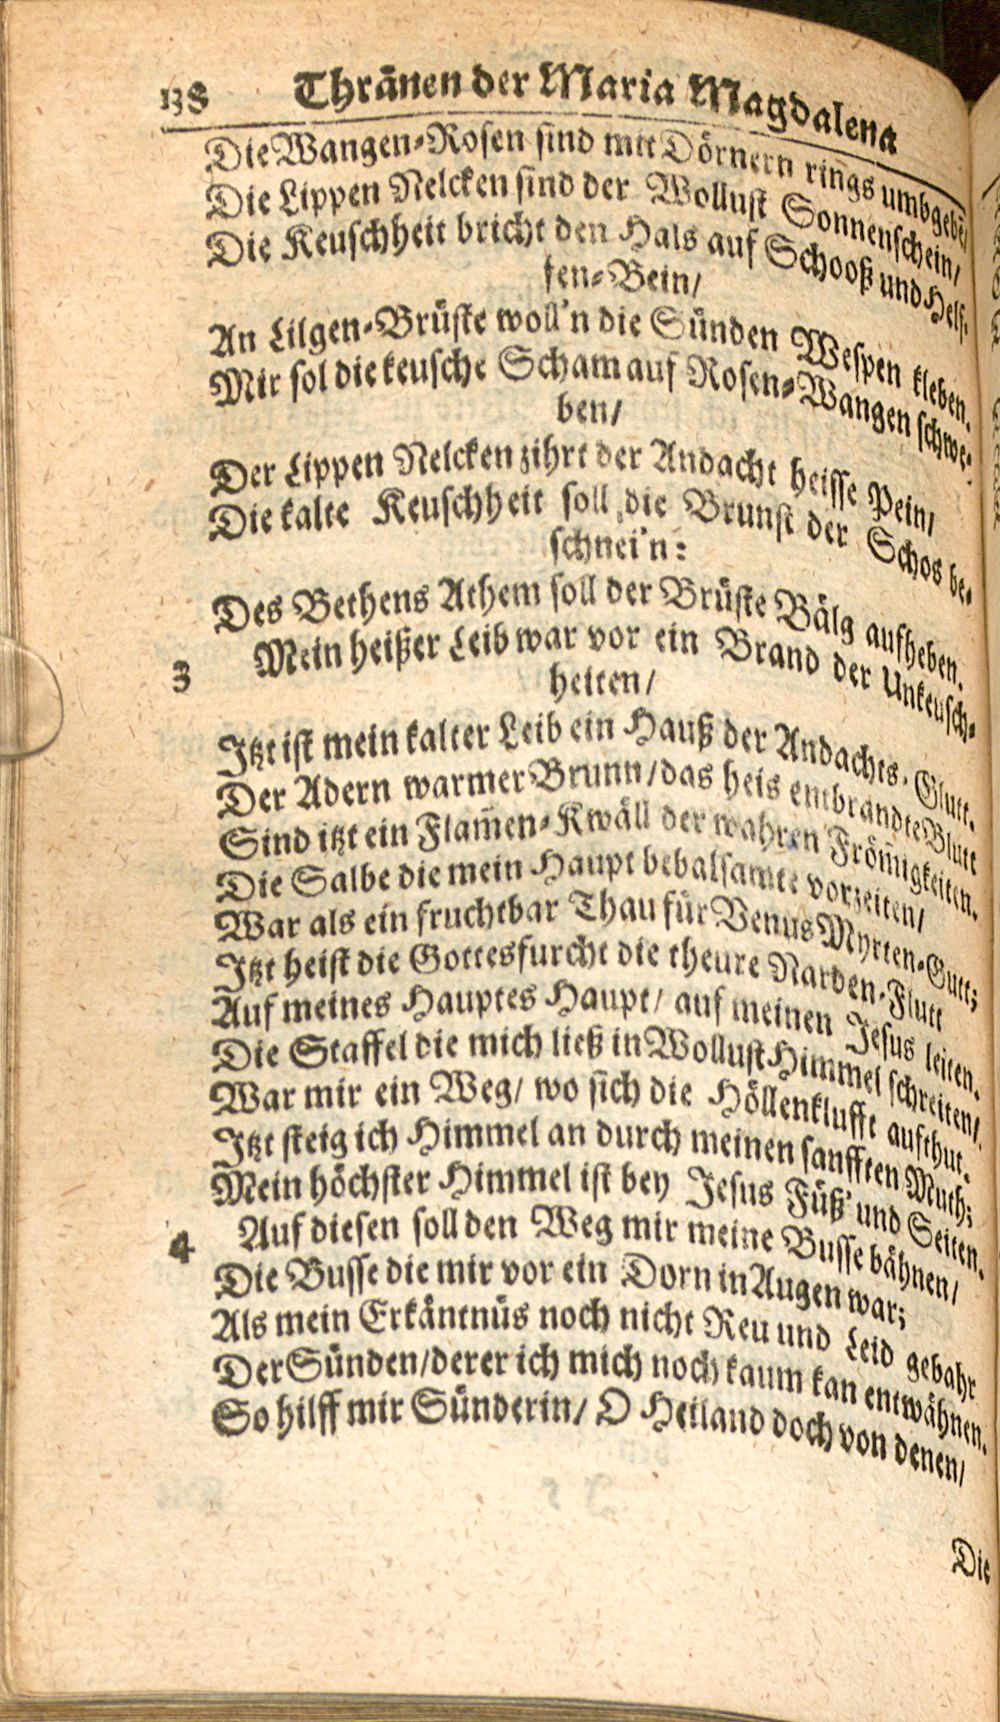 138 Thränen der Maria Magdalena
Die Wangen-Rosen sind mit Dörnern rings umbgebē/
Die Lippen Nelcken sind der Wollust Sonnenschein/
Die Keuschheit bricht den Hals auf Schooß und Helf-
fen-Bein/
An Lilgen-Brüste woll'n die Sünden Wespen kleben.
Mir sol die keusche Scham auf Rosen-Wangen schwe-
ben/
Der Lippen Nelcken zihrt der Andacht heisse Pein/
Die kalte Keuschheit soll die Brunst der Schos be-
schnei'n:
Des Bethens Athem soll der Brüste Bälg aufheben.
3 Mein heißer Leib war vor ein Brand der Unkeusch-
heiten/
Itzt ist mein kalter Leib ein Hauß der Andachts-Glutt.
Der Adern warmer Brunn/das heis entbrandte Blutt
Sind itzt ein Flam̄en-Kwäll der wahren Fröm̄igkeiten.
Die Salbe die mein Haupt bebalsamte vorzeiten/
War als ein fruchtbar Thau für Venus Myrten-Gutt;
Itzt heist die Gottesfurcht die theure Narden-Flutt
Auf meines Hauptes Haupt/ auf meinen Jesus leiten.
Die Staffel die mich ließ in Wollust Himmel schreiten/
War mir ein Weg/ wo sich die Höllenklufft aufthut.
Itzt steig ich Himmel an durch meinen sanfften Muth;
Mein höchster Himmel ist bey Jesus Füß' und Seiten.
4 Auf diesen soll den Weg mir meine Busse bähnen/
Die Busse die mir vor ein Dorn in Augen war;
Als mein Erkäntnüs noch nicht Reu und Leid gebahr
Der Sünden/derer ich mich noch kaum kan entwähnen.
So hilff mir Sünderin/ O Heiland doch von denen/
Die